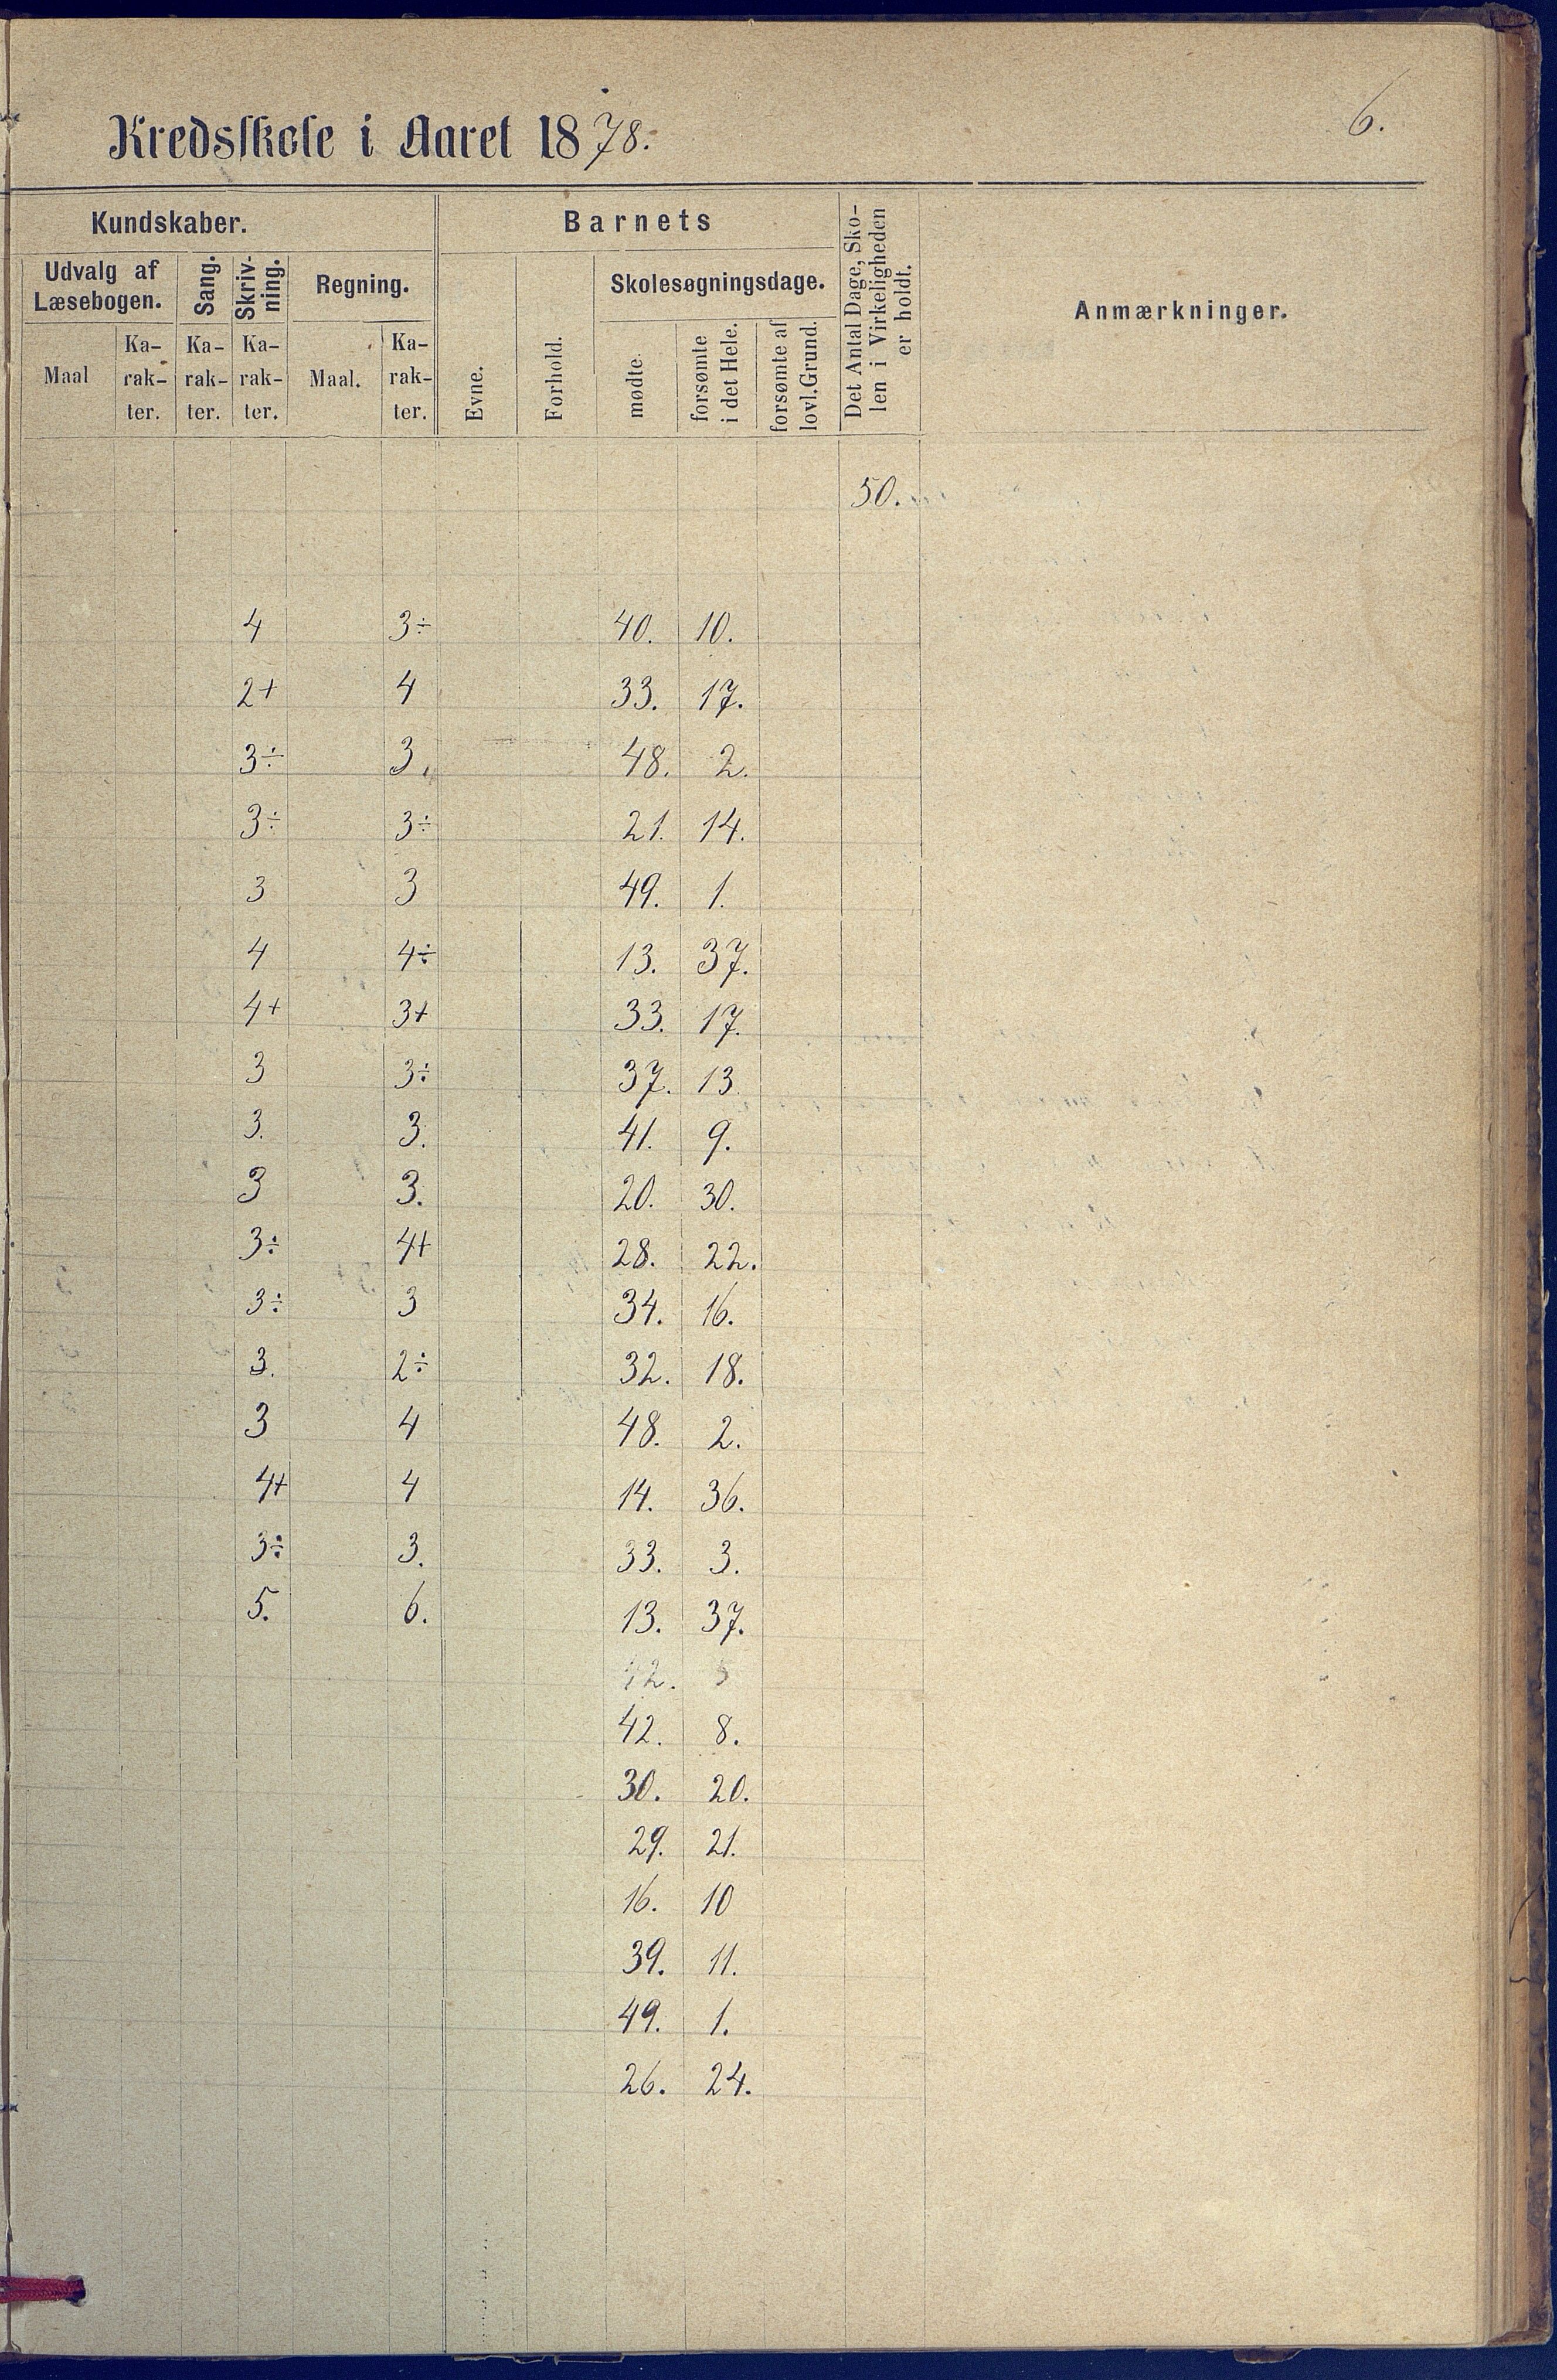 6.
Kredsskole i Aaret 1878.
Kundskaber.
Barnets
Det Antal Dage, Skolen i Virkeligheden er holdt.
Anmærkninger.
Udvalg af Læsebogen.
Sang.
Skrivning.
Regning.
Evne.
Forhold.
Skolesøgningsdage.
Maal
Karakter.
Karakter.
Karakter.
Maal.
Karakter.
mødte.
forsømte i det Hele.
forsømte af lovl. Grund.
50.
4 3÷ 40. 10.
2+ 4 33. 17.
3÷ 3. 48. 2.
3÷ 3÷ 21. 14.
3 3 49. 1.
4 4÷ 13. 37.
4+ 3+ 33. 17.
3 3÷ 37. 13
3. 3. 41. 9.
3 3. 20. 30.
3÷ 4+ 28. 22.
3÷ 3 34. 16.
3. 2÷ 32. 18.
3 4 48. 2.
4+ 4 14. 36.
3÷ 3. 33. 3.
5. 6. 13. 37.
42. 8.
30. 20.
29. 21.
16. 10
39. 11.
49. 1.
26. 24.